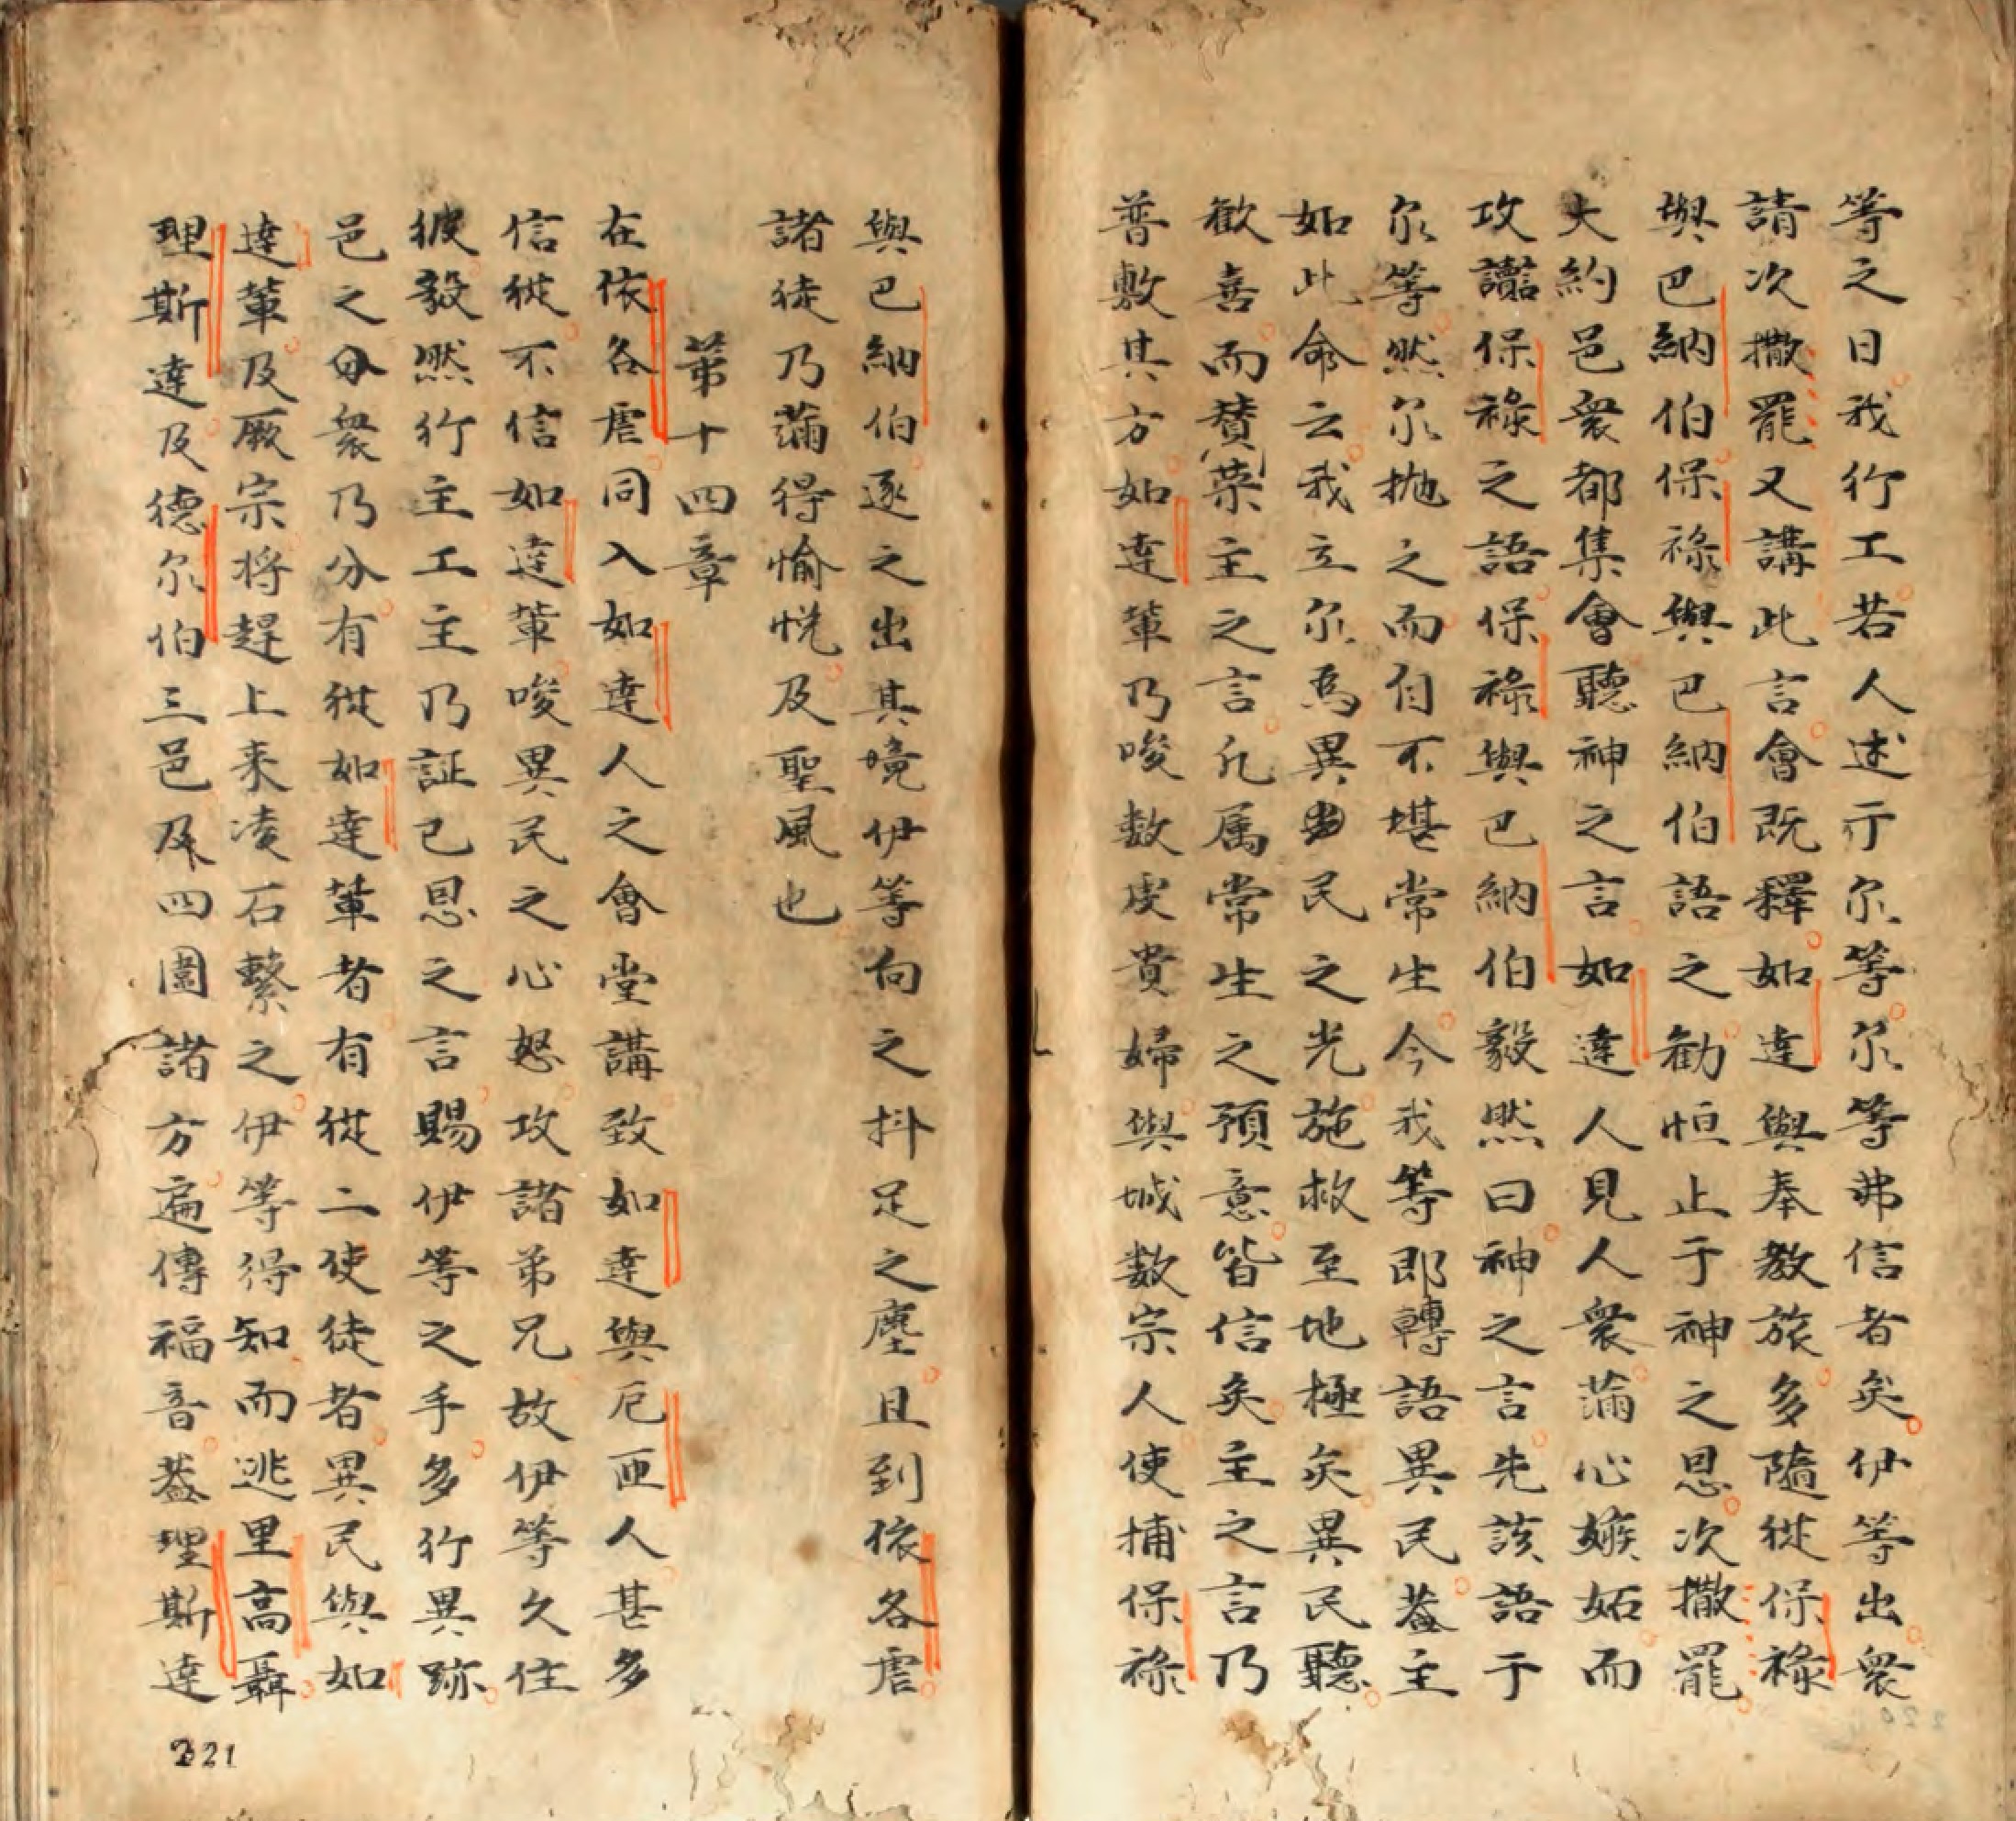 等之日我行工若人述于尔等尔等弗信者矣伊等出衆
請次撒罷又講此言會既釋如達與奉教旅多隨從保祿
與巴納伯保祿與巴納伯語之勸恒止于神之恩次撒罷
大約邑衆都集會聽神之言如達人見人衆滿心嫉妬而
攻讟保祿之語保祿與巴納伯毅然曰神之言先該語于
尔等然尔拋之而自不堪常生今我等即轉語異民蓋主
如此命云我立尔為異民之光施救至地極矣異民聽
歡喜而賛荣主之言凢属常生之預意皆信矣主之言乃
普敷其方如達輩乃唆数虔貴婦與城数宗人使捕保祿
與巴納伯逐之出其境伊等向之抖足之塵且到依各虐
諸徒乃滿得愉悦及聖風也
第十四章
在依各虐同入如達人之會堂講致如達與厄匝人甚多
信從不信如達輩唆異民之心怒攻諸弟兄故伊等久住
彼毅然行主工主乃証己恩之言賜伊等之手多行異跡
邑之衆乃分有從如達輩者有從二使徒者異民與如
達輩及厥宗将趕上来凌石擊之伊等得知而逃里高聶
理斯達及德尔伯三邑及四圍諸方徧傳福音蓋理斯達
221